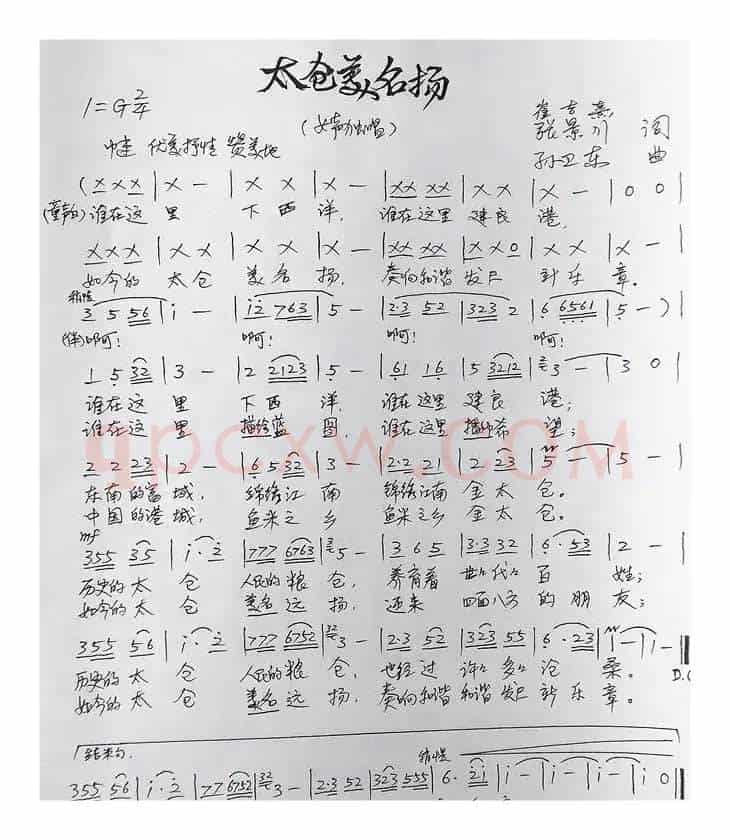 太仓美名扬
1=G 2/4
(女声独唱)
张景川 词
孙卫东 曲
中速 优美抒情 赞美地
(X X X | X — | X X X | X — | XX XX | X X | X — | 0 0 |
(童声白)谁在这里 下西洋, 谁在这里建良港,
X X X | X X | X X | X — | XX XX | X X 0 | X X | X — |
如今的太仓 美名扬。奏响和谐发展新乐章。
稍慢
3 5 56 | i — | i2 763 | 5 — | 2·3 52 | 323 2 | 6 6561 | 5 — ) |
(伴)啊! 啊! 啊! 啊!
1 5 32 | 3 — | 2 2123 | 5 — | 61 16 | 5 3212 | 3 — | 3 0 |
谁在这里 下西洋, 谁在这里建良港;
谁在这里 描绘蓝图, 谁在这里播种希望;
2 2 23 | 2 — | 6 5 32 | 3 — | 2·2 21 | 2 23 | 5 — | 5 — |
东南的富城, 锦绣江南 锦绣江南金太仓。
中国的港城, 鱼米之乡 鱼米之乡金太仓。
mf
355 35 | i·2 | 777 6763 | 5 — | 3 6 5 | 3·3 32 | 6·53 | 2 — |
历史的太仓 人民的粮仓, 养育着世世代代百姓;
如今的太仓 美名远扬, 迎来四面八方的朋友;
355 56 | i·2 | 777 6752 | 3 — | 2·3 52 | 323 55 | 6·23 | i — | i — ‖
D.C
历史的太仓 人民的粮仓, 也经过许许多多沧桑。
如今的太仓 美名远扬, 奏响和谐和谐发展新乐章。
结束句
稍慢
355 56 | i·2 | 77 6752 | 3 — | 2·3 52 | 323 555 | 6· 2i | i — | i — | i — | i — | i 0 ‖
qpcxw.COM